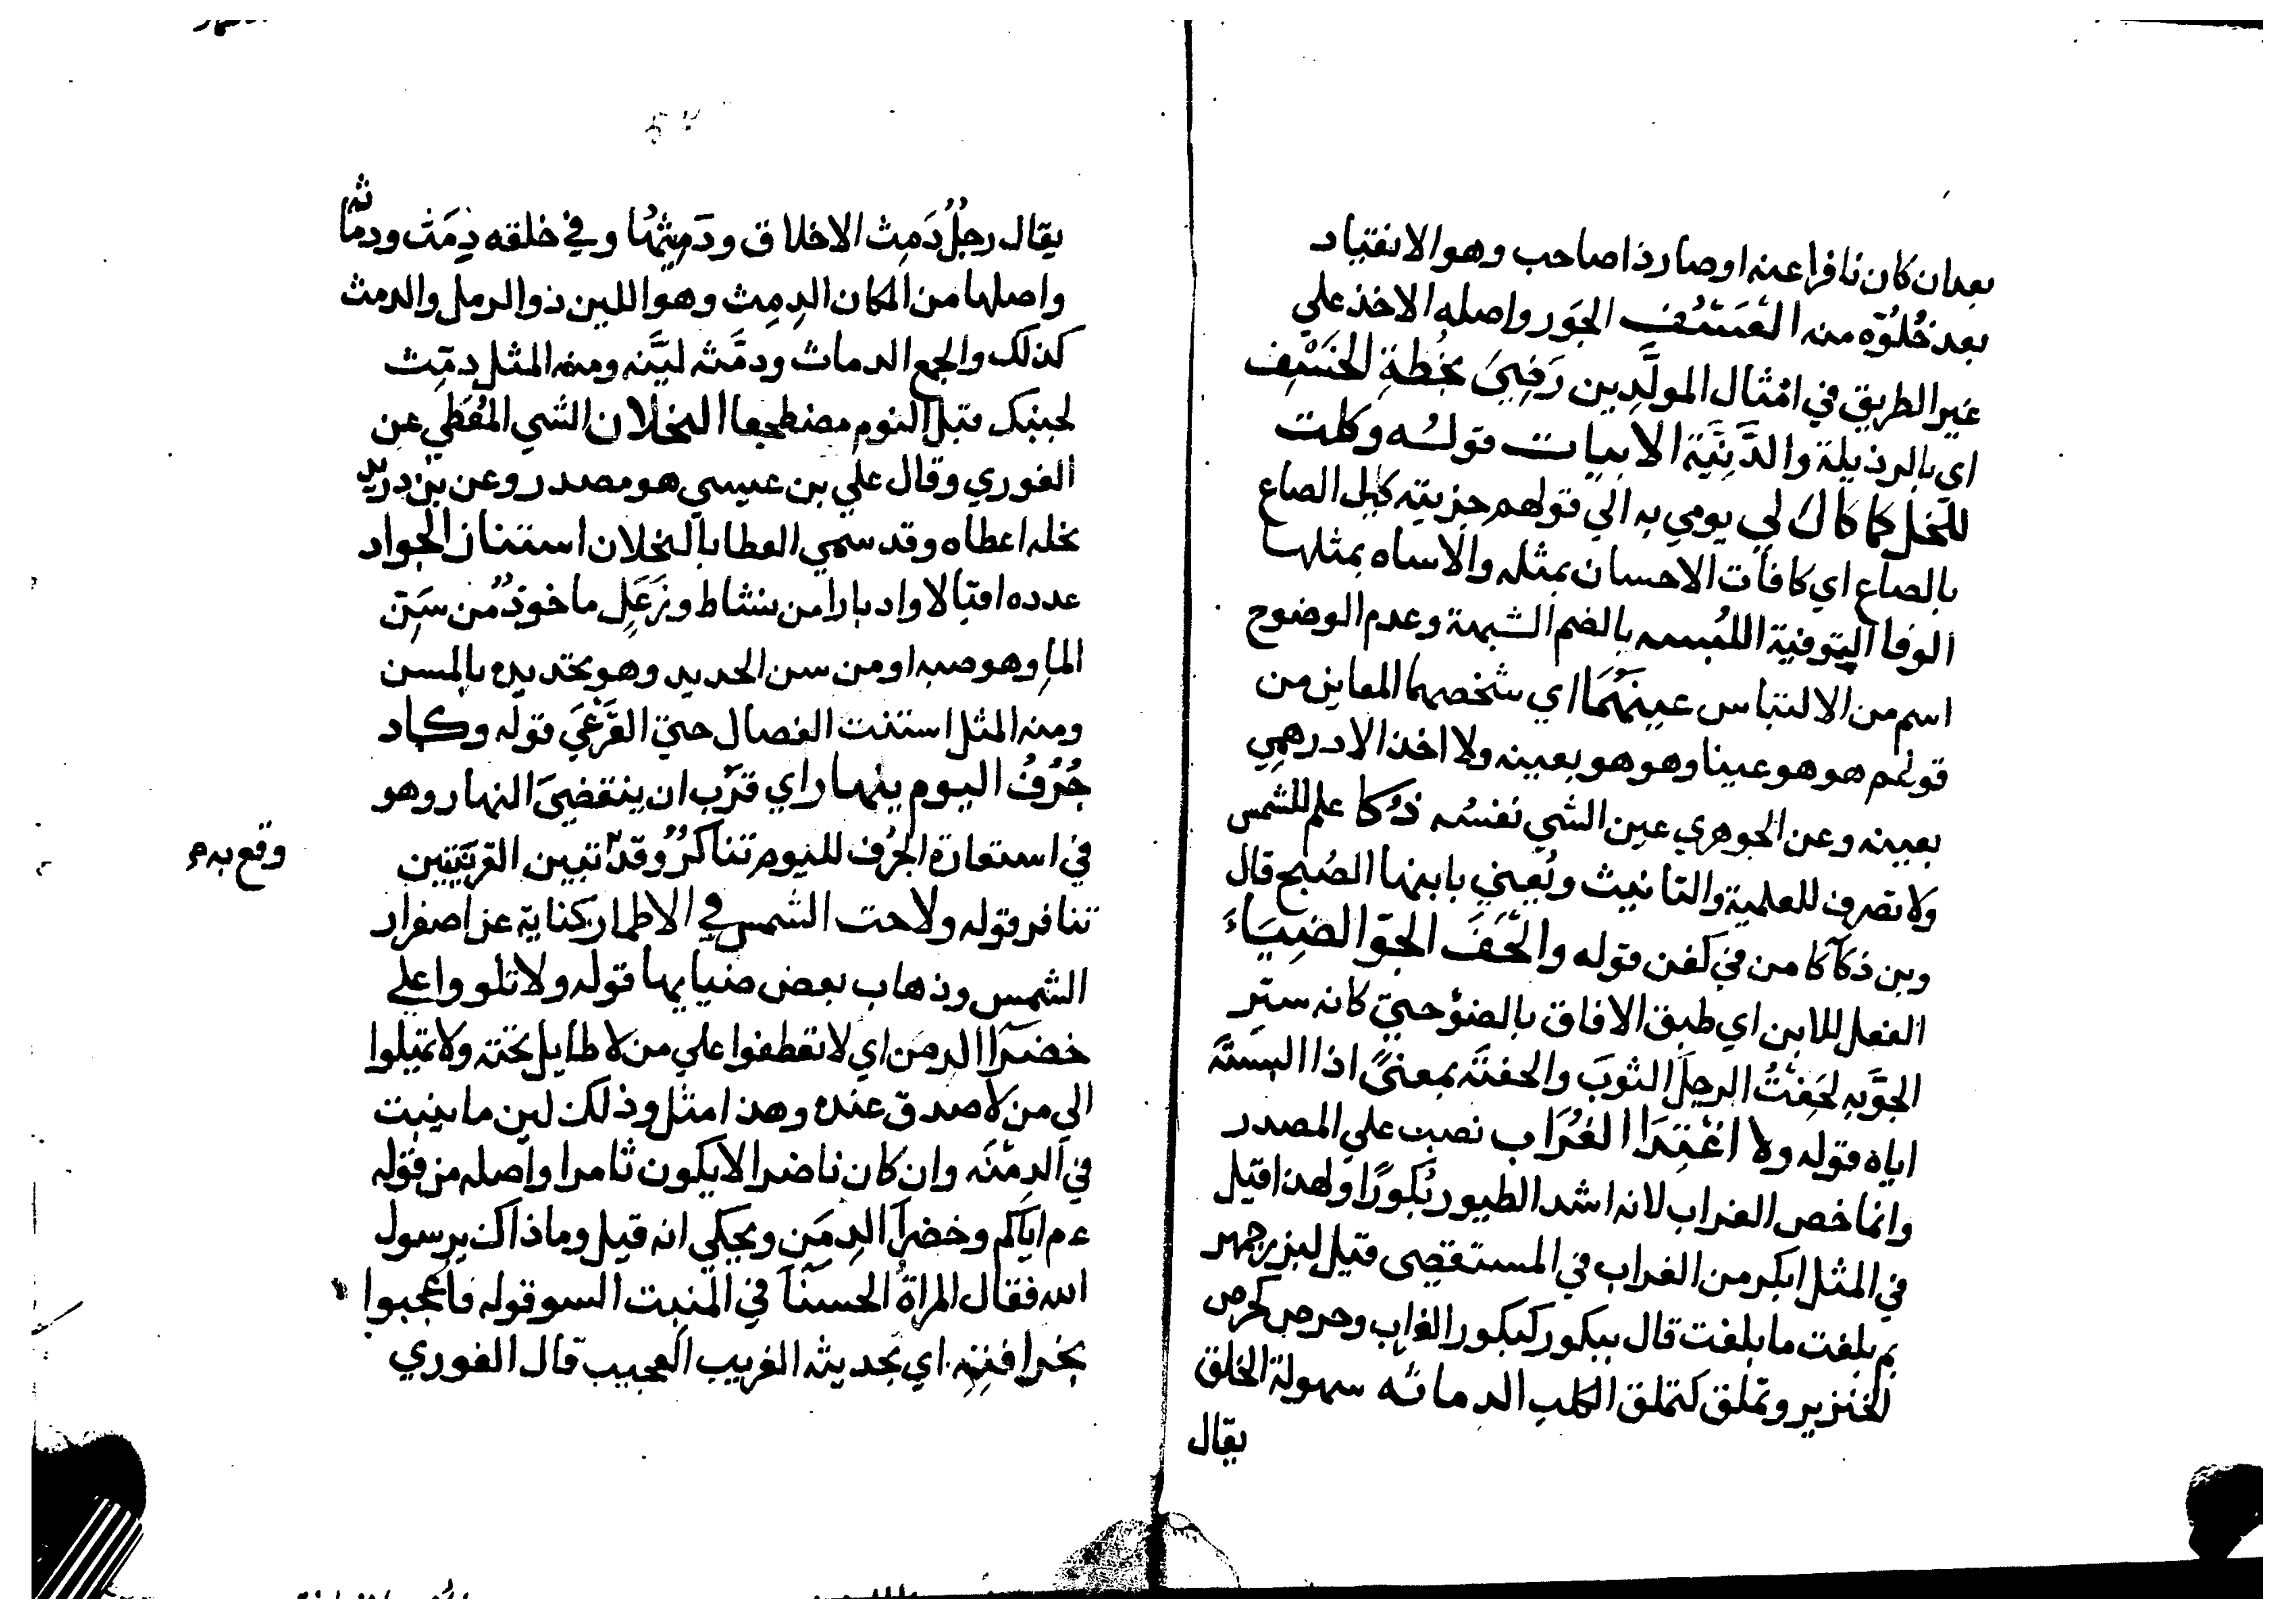 بعدان كان نافرا عنه اوصار ذا صاحب وهو الانقياد
بعد خُلُوّه منه العَسْف الجَور واصله الاخذ علي
غير الطريق في امثال المولَّدِين رَضِيَ بخُطةِ الخَسْفِ
اي بالرذيلة والدَّنِيَّة الابيات قولـه وكلت
للخل كما كال لي يومي به الي قولهم جزيته كيل الصاع
بالصاع اي كافات الاحسان بمثله والاساه بمثلها
الوفا التوفية اللُبسه بالضم الشبهة وعدم الوضوح
اسم من الالتباس عينَهُمَا اي شخصهما المعاين من
قولهم هو هو عينا وهو هو بعينه ولا اخذ الا درهمي
بعينه وعن الجوهري عين الشي نفسُه ذُكا علم للشمس
ولا تصرف للعلمية والتانيث ويُعني بابنها الصُبح قال
وبن ذكآ كامن في كفن قوله والحَفَ الجوّ الضِيَاءَ
الفعل للابن اي طبق الافاق بالضؤ حتي كانه ستر
الجوَّ به لَحَفْتُ الرجلَ الثوبَ والحفته بمعنيً اذا البسته
اياه قوله ولا اغْتِدَا الغُرَاب نصبت علي المصدر
وانما خص الغراب لانه اشد الطيور بُكورًا ولهذا قيل
في المثل ابكر من الغراب في المستقصي قيل لبزرجمهر
بم بلغت ما بلغت قال ببكور كبكور الغراب وحرص كحرص
الخنزير وتملق كتملق الكلب الدماثه سهولة الخلق
يقال
يقال رجلٌ دَمِث الاخلاق ودَمِيثُها وفي خلقه دِمَث ودماثه
واصلها من المكان الدمِث وهو اللين ذو الرمل والدمث
كذلك والجمع الدماث ودمَّثه ليَّنه ومنه المثل دمِّث
لجنبك قبل النوم مضطجعا النحلان الشي المُعْطي عن
الغوري وقال علي بن عيسي هو مصدر وعن بن دريد
نحله اعطاه وقد سمي العطا بالنحلان استنان الجواد
عدده اقبالا وادبارا من نشاط وزَعَلٍ ماخوذ من سَنِّ
الما وهو صبه او من سن الحديد وهو تحديده بالمسن
ومنه المثل استنت الفصال حتي القَرْعَي قوله وكاد
جُرُفُ اليوم ينهار اي قرُب ان ينقضيَ النهار وهو
في استعارة الجُرُف لليوم تناكرٌ وقد تبين القرينتين
وقع به م
تنافر قوله ولاحت الشمس في الاطمار كناية عن اصفرار
الشمس وذهاب بعض ضيايها قوله ولا تلووا علي
خضرآ الدمن اي لا تعطفوا علي من لا طايل تحته ولا تميلوا
الي من لا صدق عنده وهذا مثل وذلك لين ما ينبت
في الدِمْنَه وان كان ناضرا لا يكون ثامرا واصله من قوله
ءم اياكم وخضرآ الدِمَن ويحكي انه قيل وما ذاك يرسول
الله فقال المراة الحسنآ في المنبت السو قوله فاعجبوا
بخرافته اي بحديثه الغريب العجيب قال الغوري